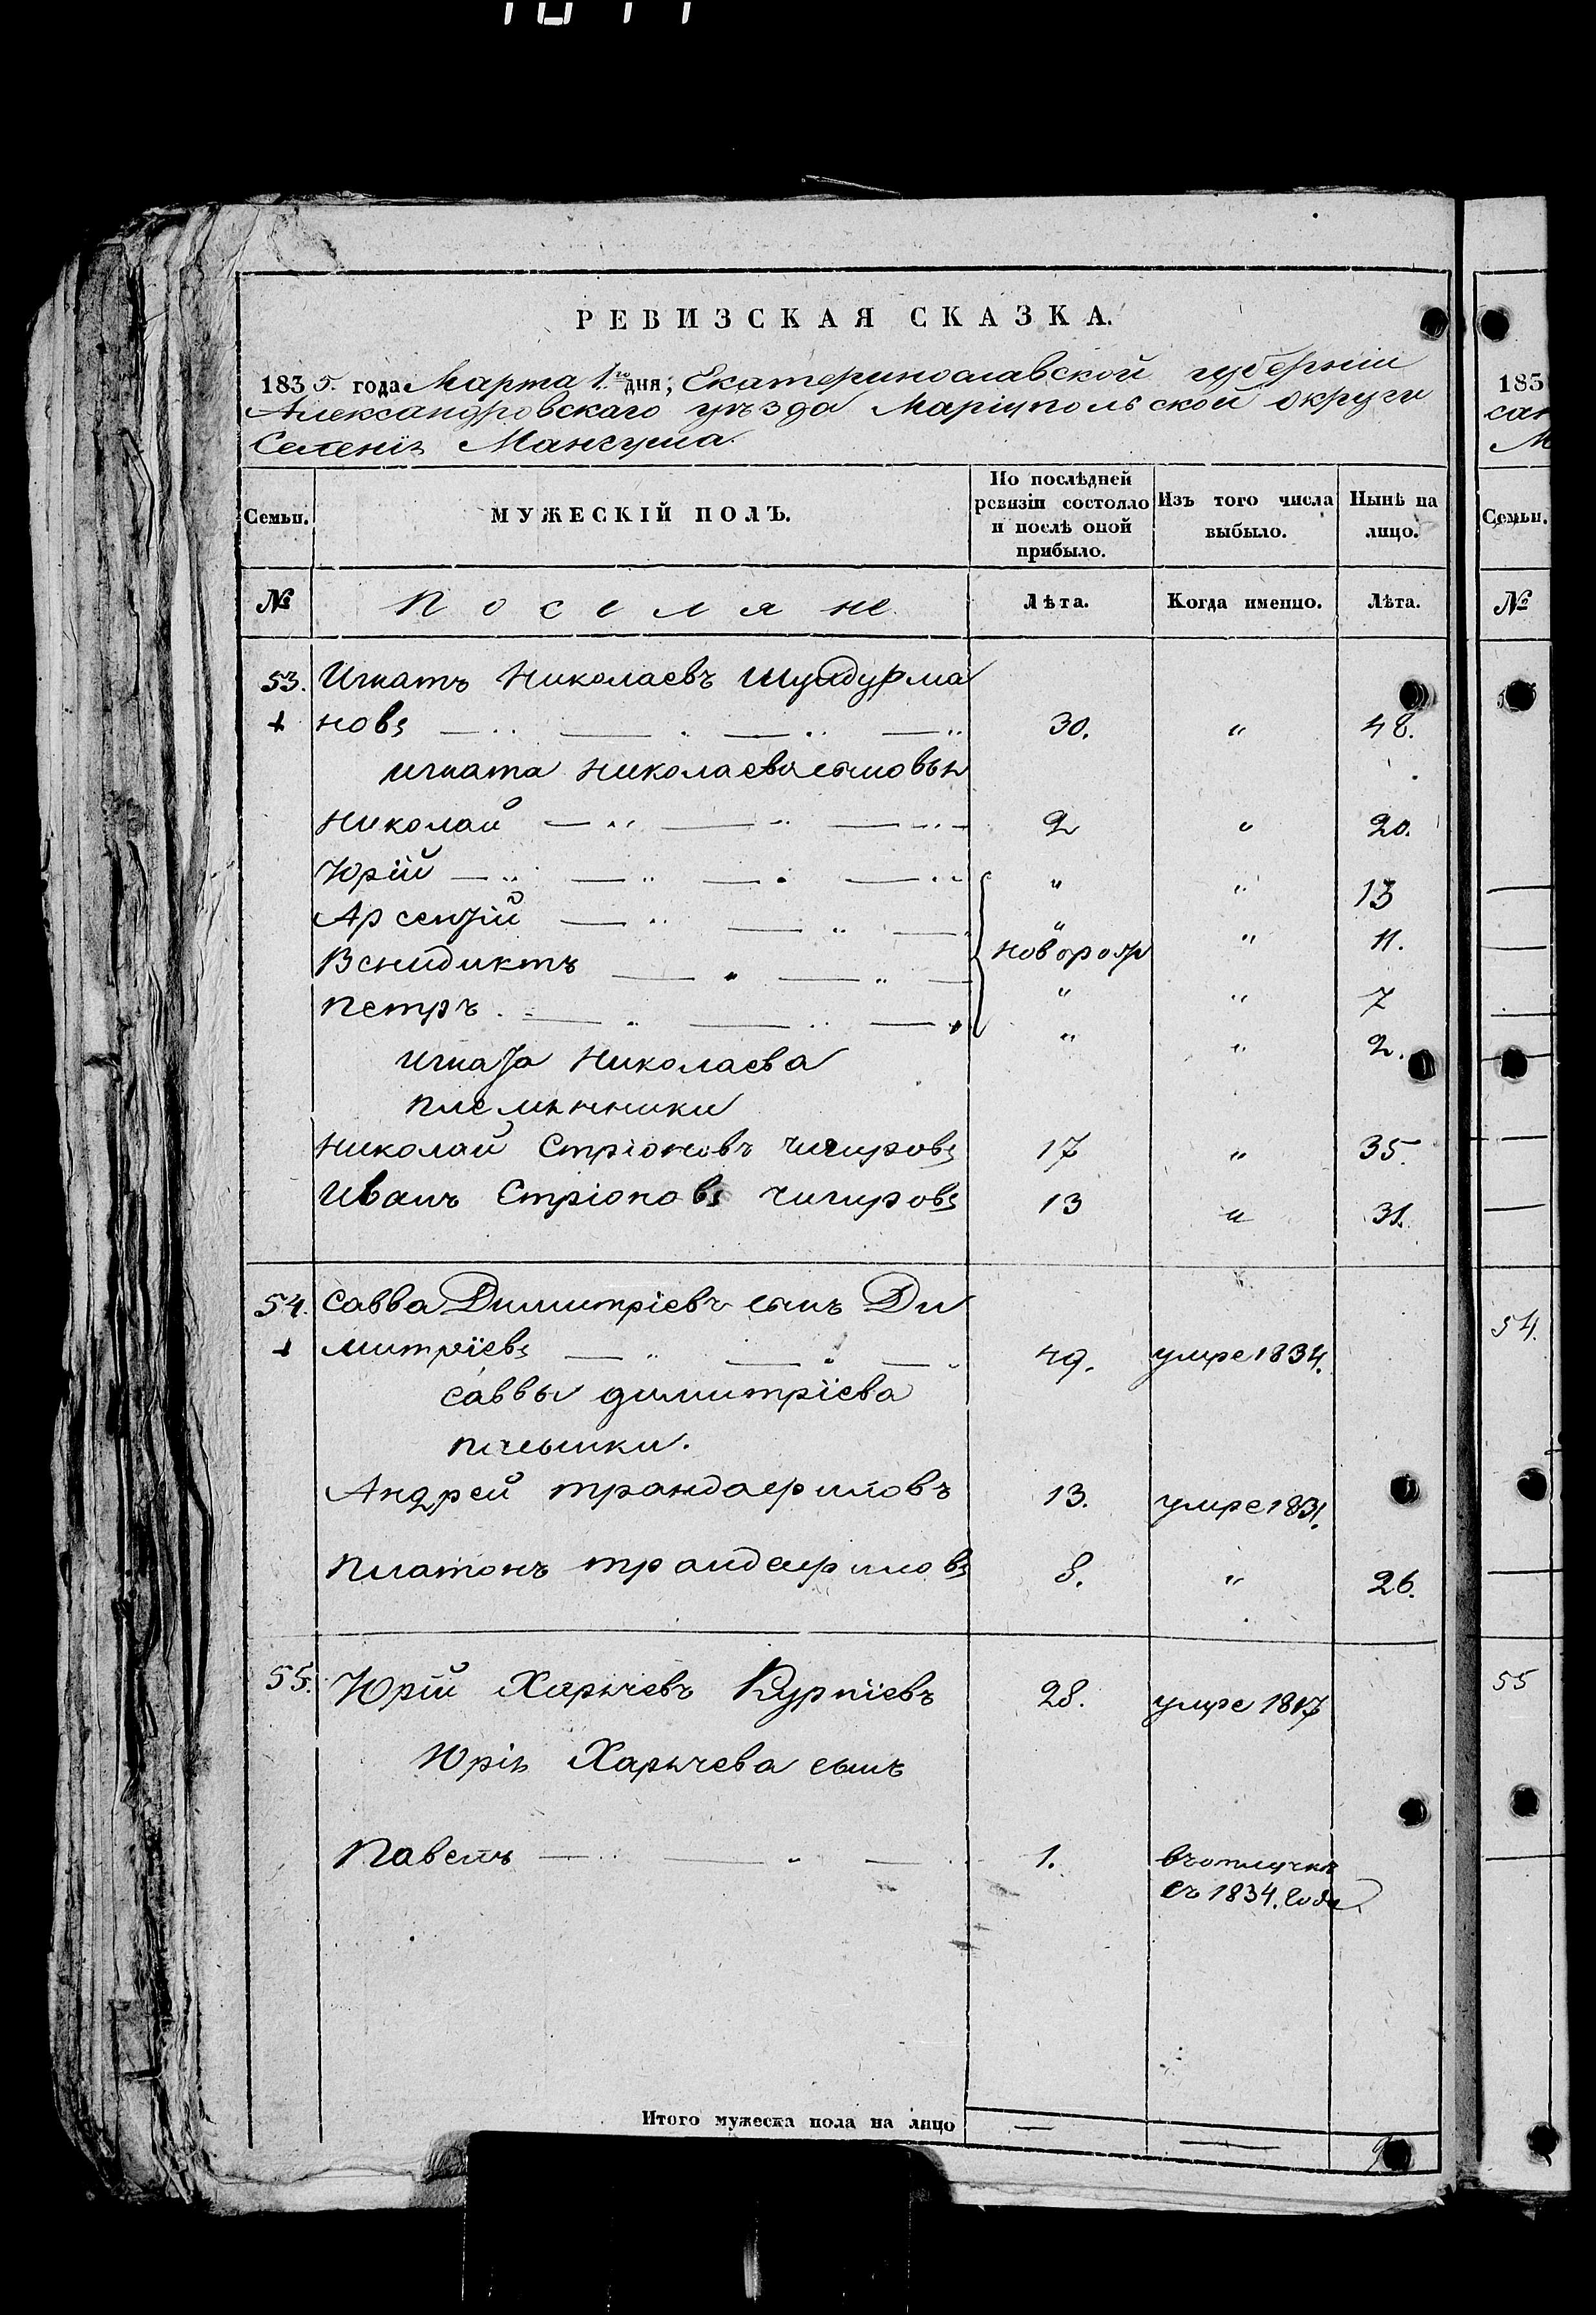 РЕВИЗСКАЯ СКАЗКА.
1835. года Марта 1.го дня, Екатеринославской губерніи
Александровскаго уѣзда Маріупольской округи
Селенія Мангуша.
Семьи. МУЖЕСКІЙ ПОЛЪ. По послѣдней ревизіи состояло и послѣ оной прибыло. Изъ того числа выбыло. Нынѣ на лицо.
№ Поселяне Лѣта. Когда именно. Лѣта.
53. Игнатъ Николаевъ Шундурма
новъ 30. " 48.
Игната Николаева сыновья
Николай 2 " 20.
Юрій " " 13
Арсентій " " 11.
новорож
Венидиктъ " " 7
Петръ " " 2.
Игната Николаева
племянники
Николай Стріоновъ Чигировъ 17 " 35.
Иванъ Стріоновъ Чигировъ 13 " 31.
54. Савва Димитріевъ сынъ Ди
митріевъ 49. умре 1834.
Саввы Димитріева
Андрей Трандафиловъ 13. умре 1831.
Платонъ Трандафиловъ 8. " 26.
55. Юрій Харычевъ Курпіевъ 28. умре 1817
Юрія Харычева сынъ
Павелъ 1. въ отлучкѣ
съ 1834. года
Итого мужеска пола на лицо — — 9
183
Семьи.
№
54.
55